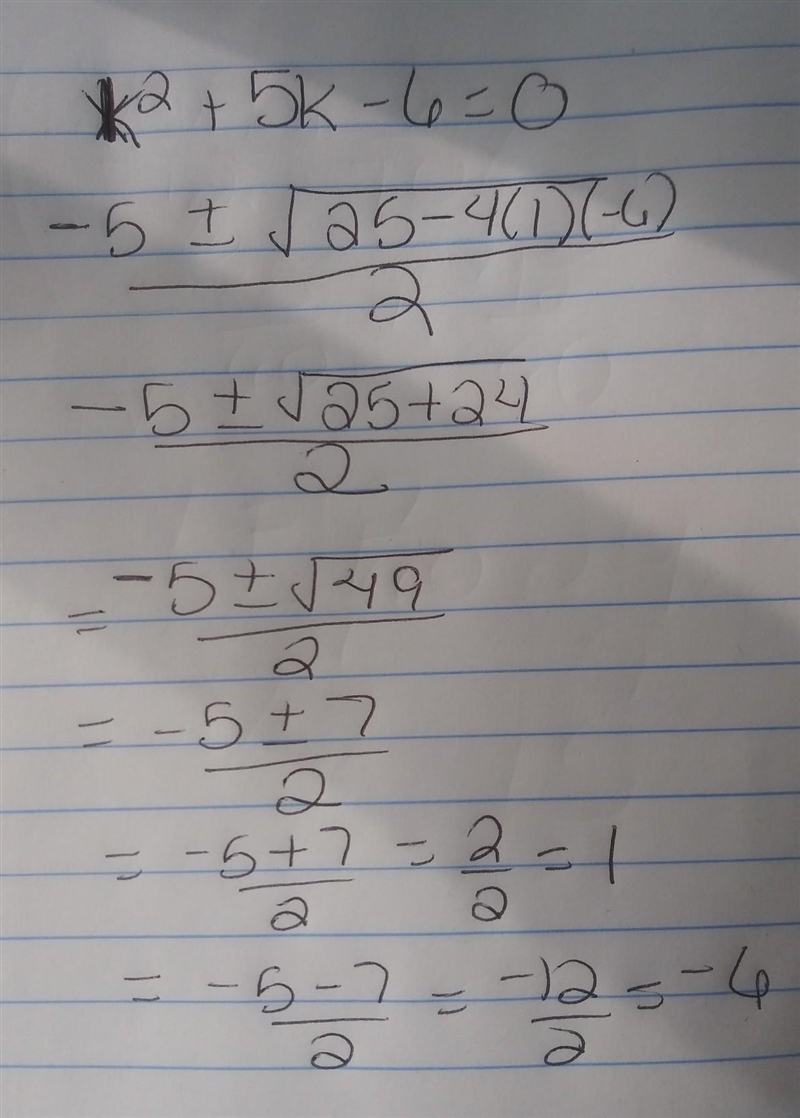 k² + 5k - 6 = 0
-5 ± √25 - 4(1)(-6)
2
-5 ± √25 + 24
2
= -5 ± √49
2
= -5 ± 7
2
= -5 + 7 / 2 = 2 / 2 = 1
= -5 - 7 / 2 = -12 / 2 = -6